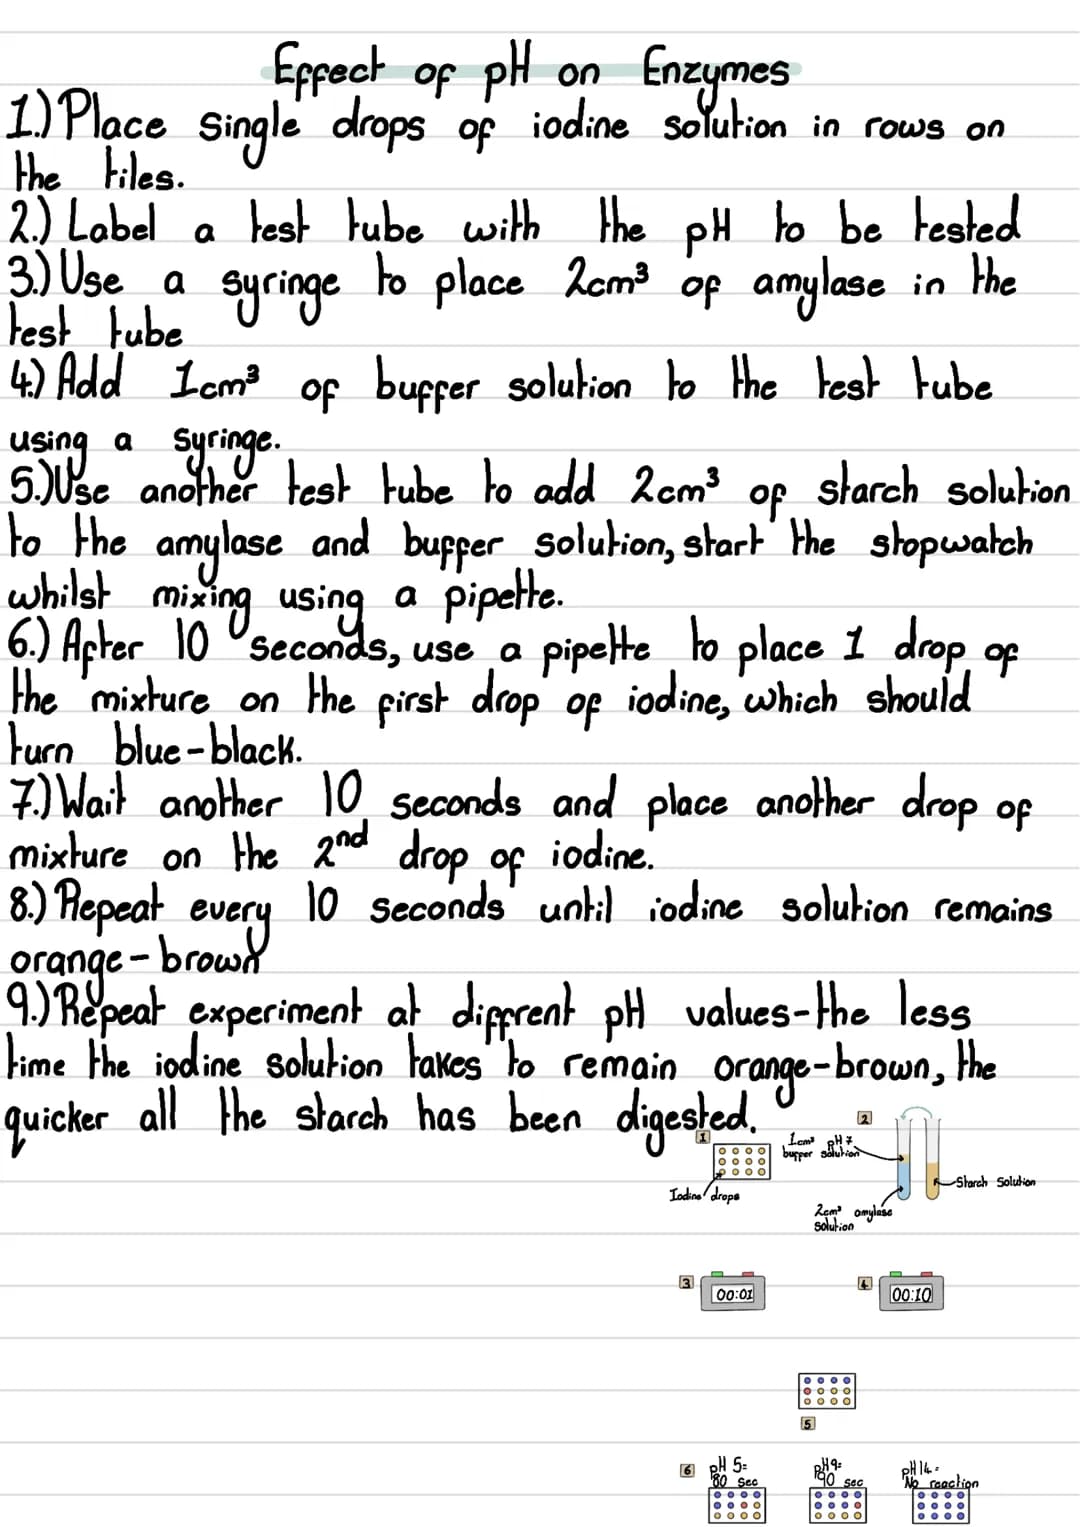 Effect of pH on Enzymes
1.) Place single drops of iodine solution in rows on
the tiles.
2.) Label a test tube with the pH to be tested
3.) Use a syringe to place 2cm³ of amylase in the
test tube
4.) Add 1cm³ of buffer solution to the test tube
using a syringe.
5.) Use another test tube to add 2cm³ of starch solution
to the amylase and buffer solution, start the stopwatch
whilst mixing using a pipette.
6.) After 10 seconds, use a pipette to place 1 drop of
the mixture on the first drop of iodine, which should
turn blue-black.
7.) Wait another 10 seconds and place another drop of
mixture on the 2nd drop of iodine.
8.) Repeat every 10 seconds until iodine solution remains
orange-brown
9.) Repeat experiment at diffrent pH values-the less
time the iodine solution takes to remain orange-brown, the
quicker all the starch has been digested.
1
Iodine drops
2
1cm³ pH 7
buffer solution
Starch Solution
2cm³ amylase
solution
3
00:01
4
00:10
5
6
pH 5=
80 sec
pH 9=
90 sec
pH 14=
No reaction